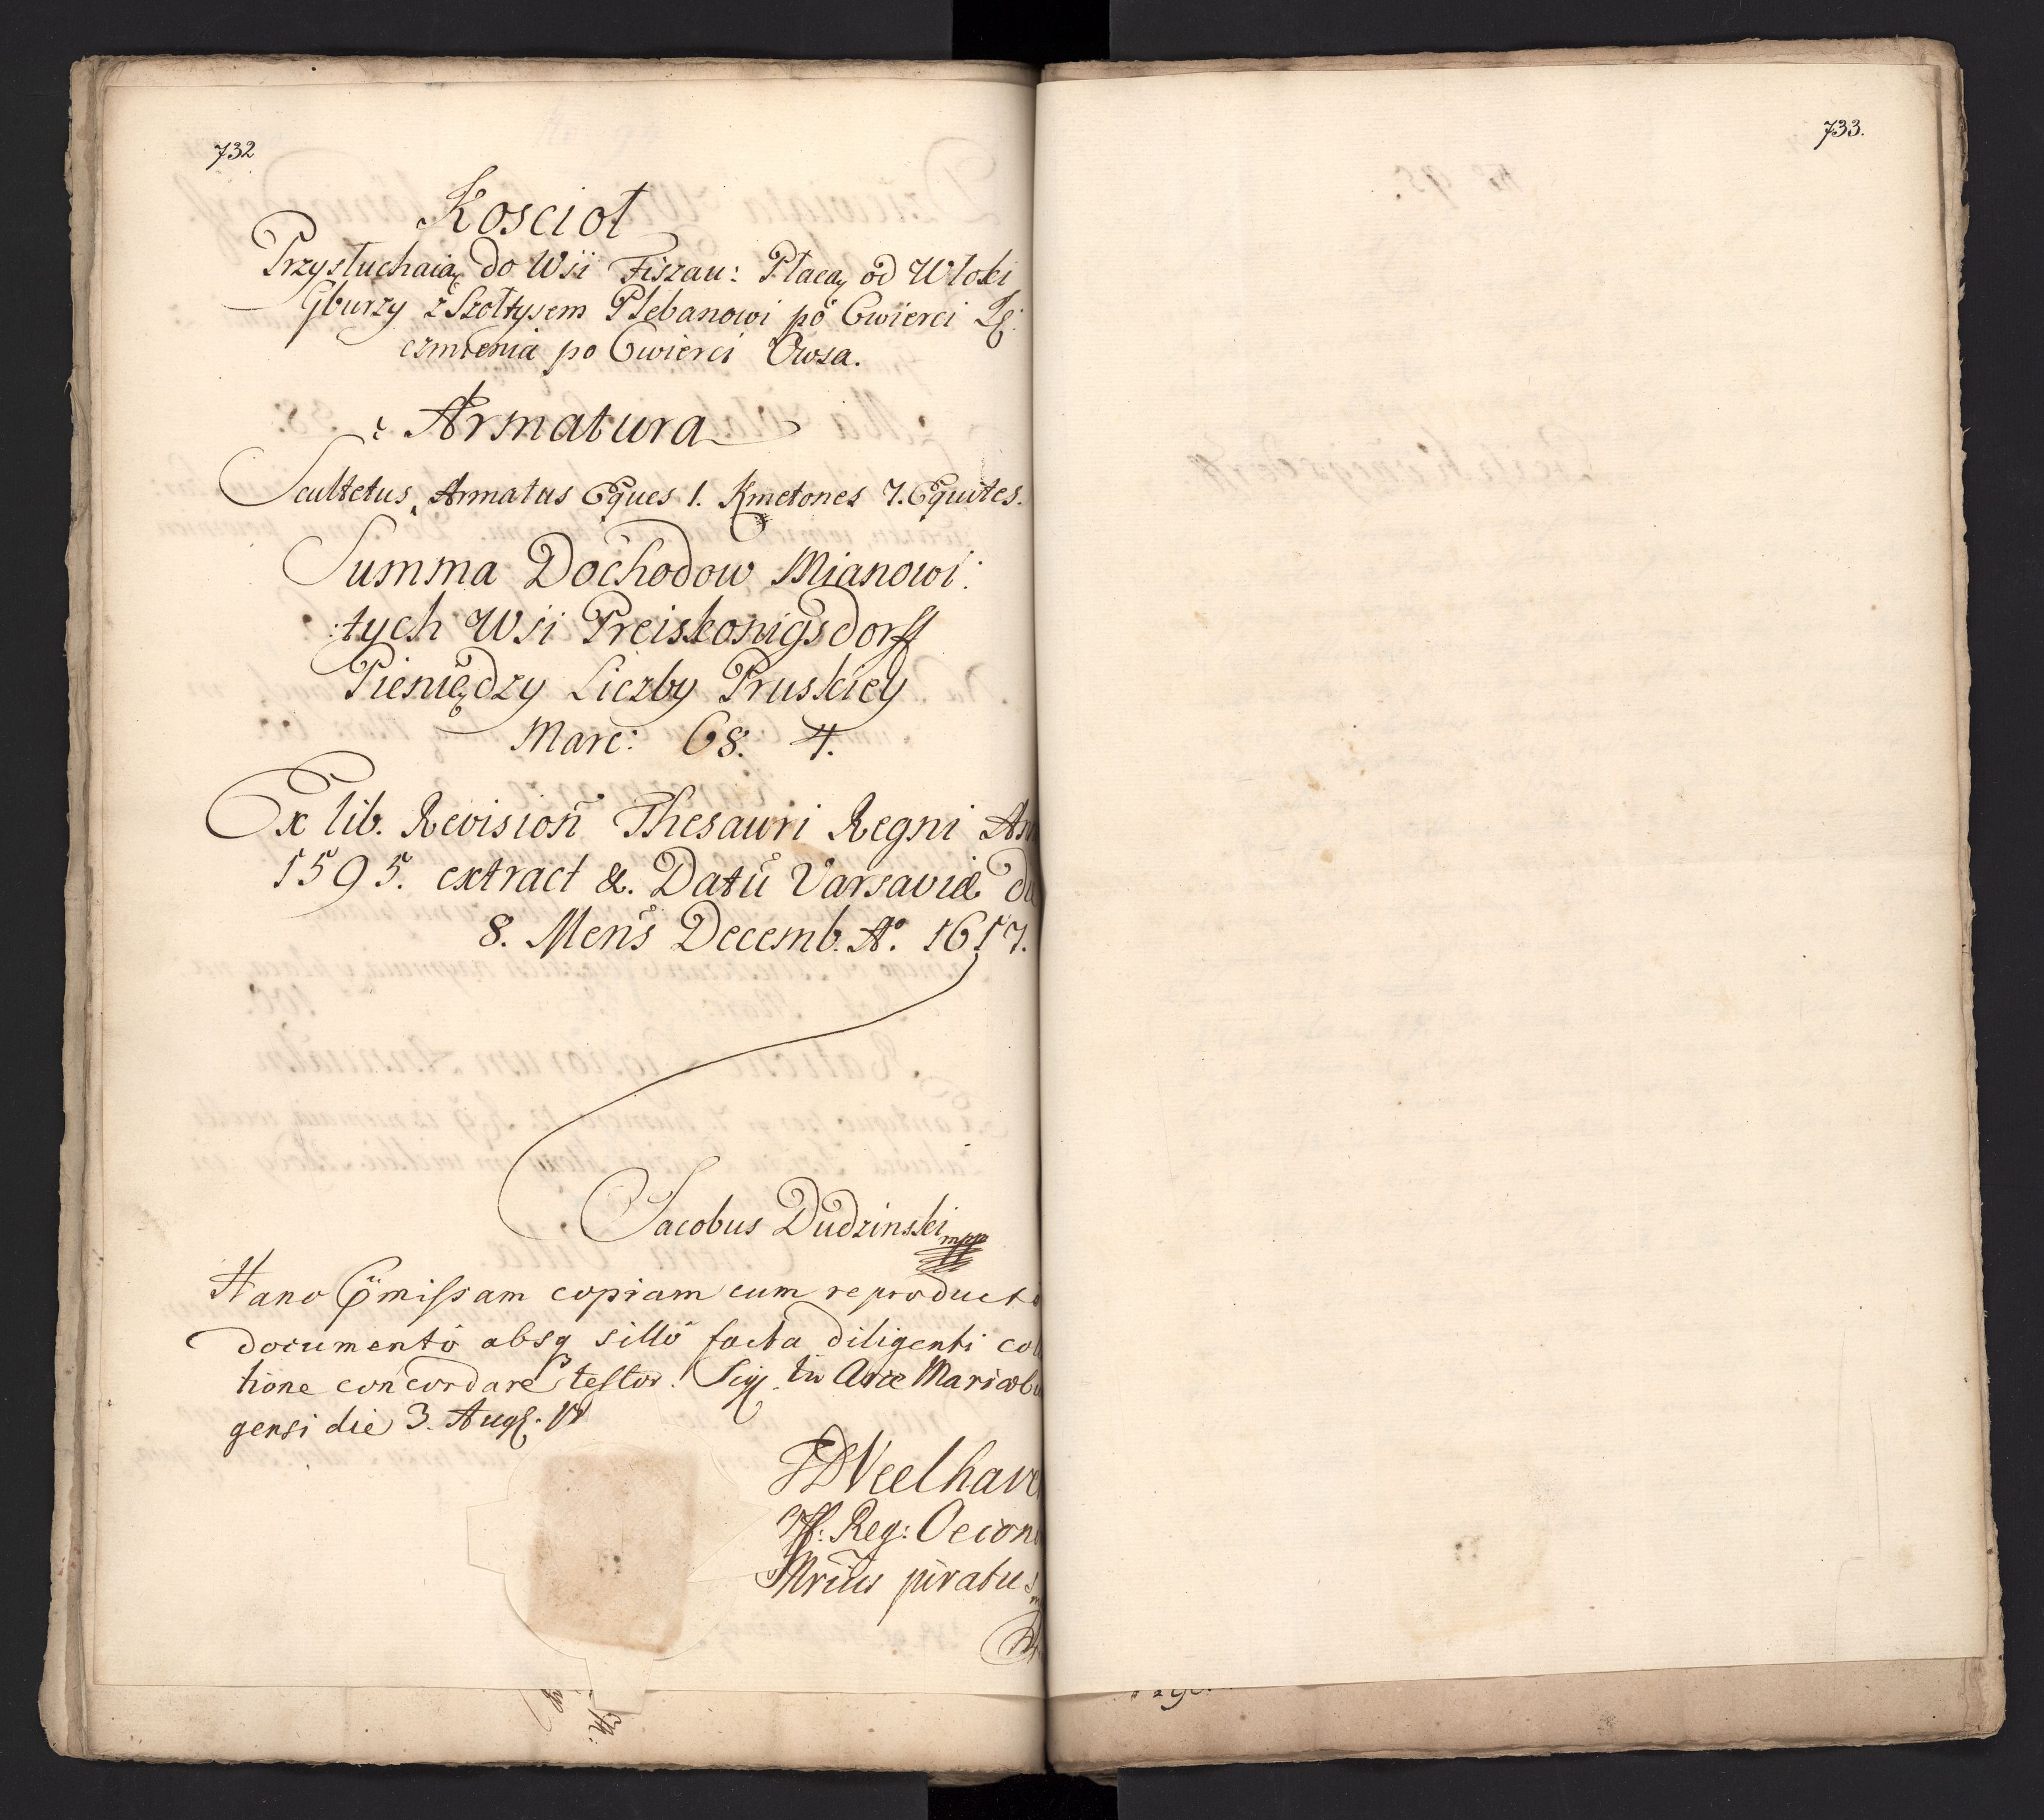 732
Koscioł
Przysłuchaią do Wsi Fiszau: Płacą od Włoki
Gburzy z Szołtysem Plebanowi po Cwierci Ię:
czmienia po Cwierci Owsa.
Armatura
Scultetus Armatus Eques 1. Kmetones 7. Equites.
Summa Dochodow Mianowi:
:tych Wsi Preiskonigsdorff
Pieniędzy Liczby Pruskiey
Marc: 68. 4.
Ex lib. Revisioñ Thesauri Regni
1595. extract &. Datū Varsaviæ
8. Mens Decemb. Aº. 1617.
Jacobus Dudzinski mpp
Hanc copiam cum
documentô absq facta diligenti
tione concordare testor. in Arce
gensi die 3. Aug.
Reg:
733.